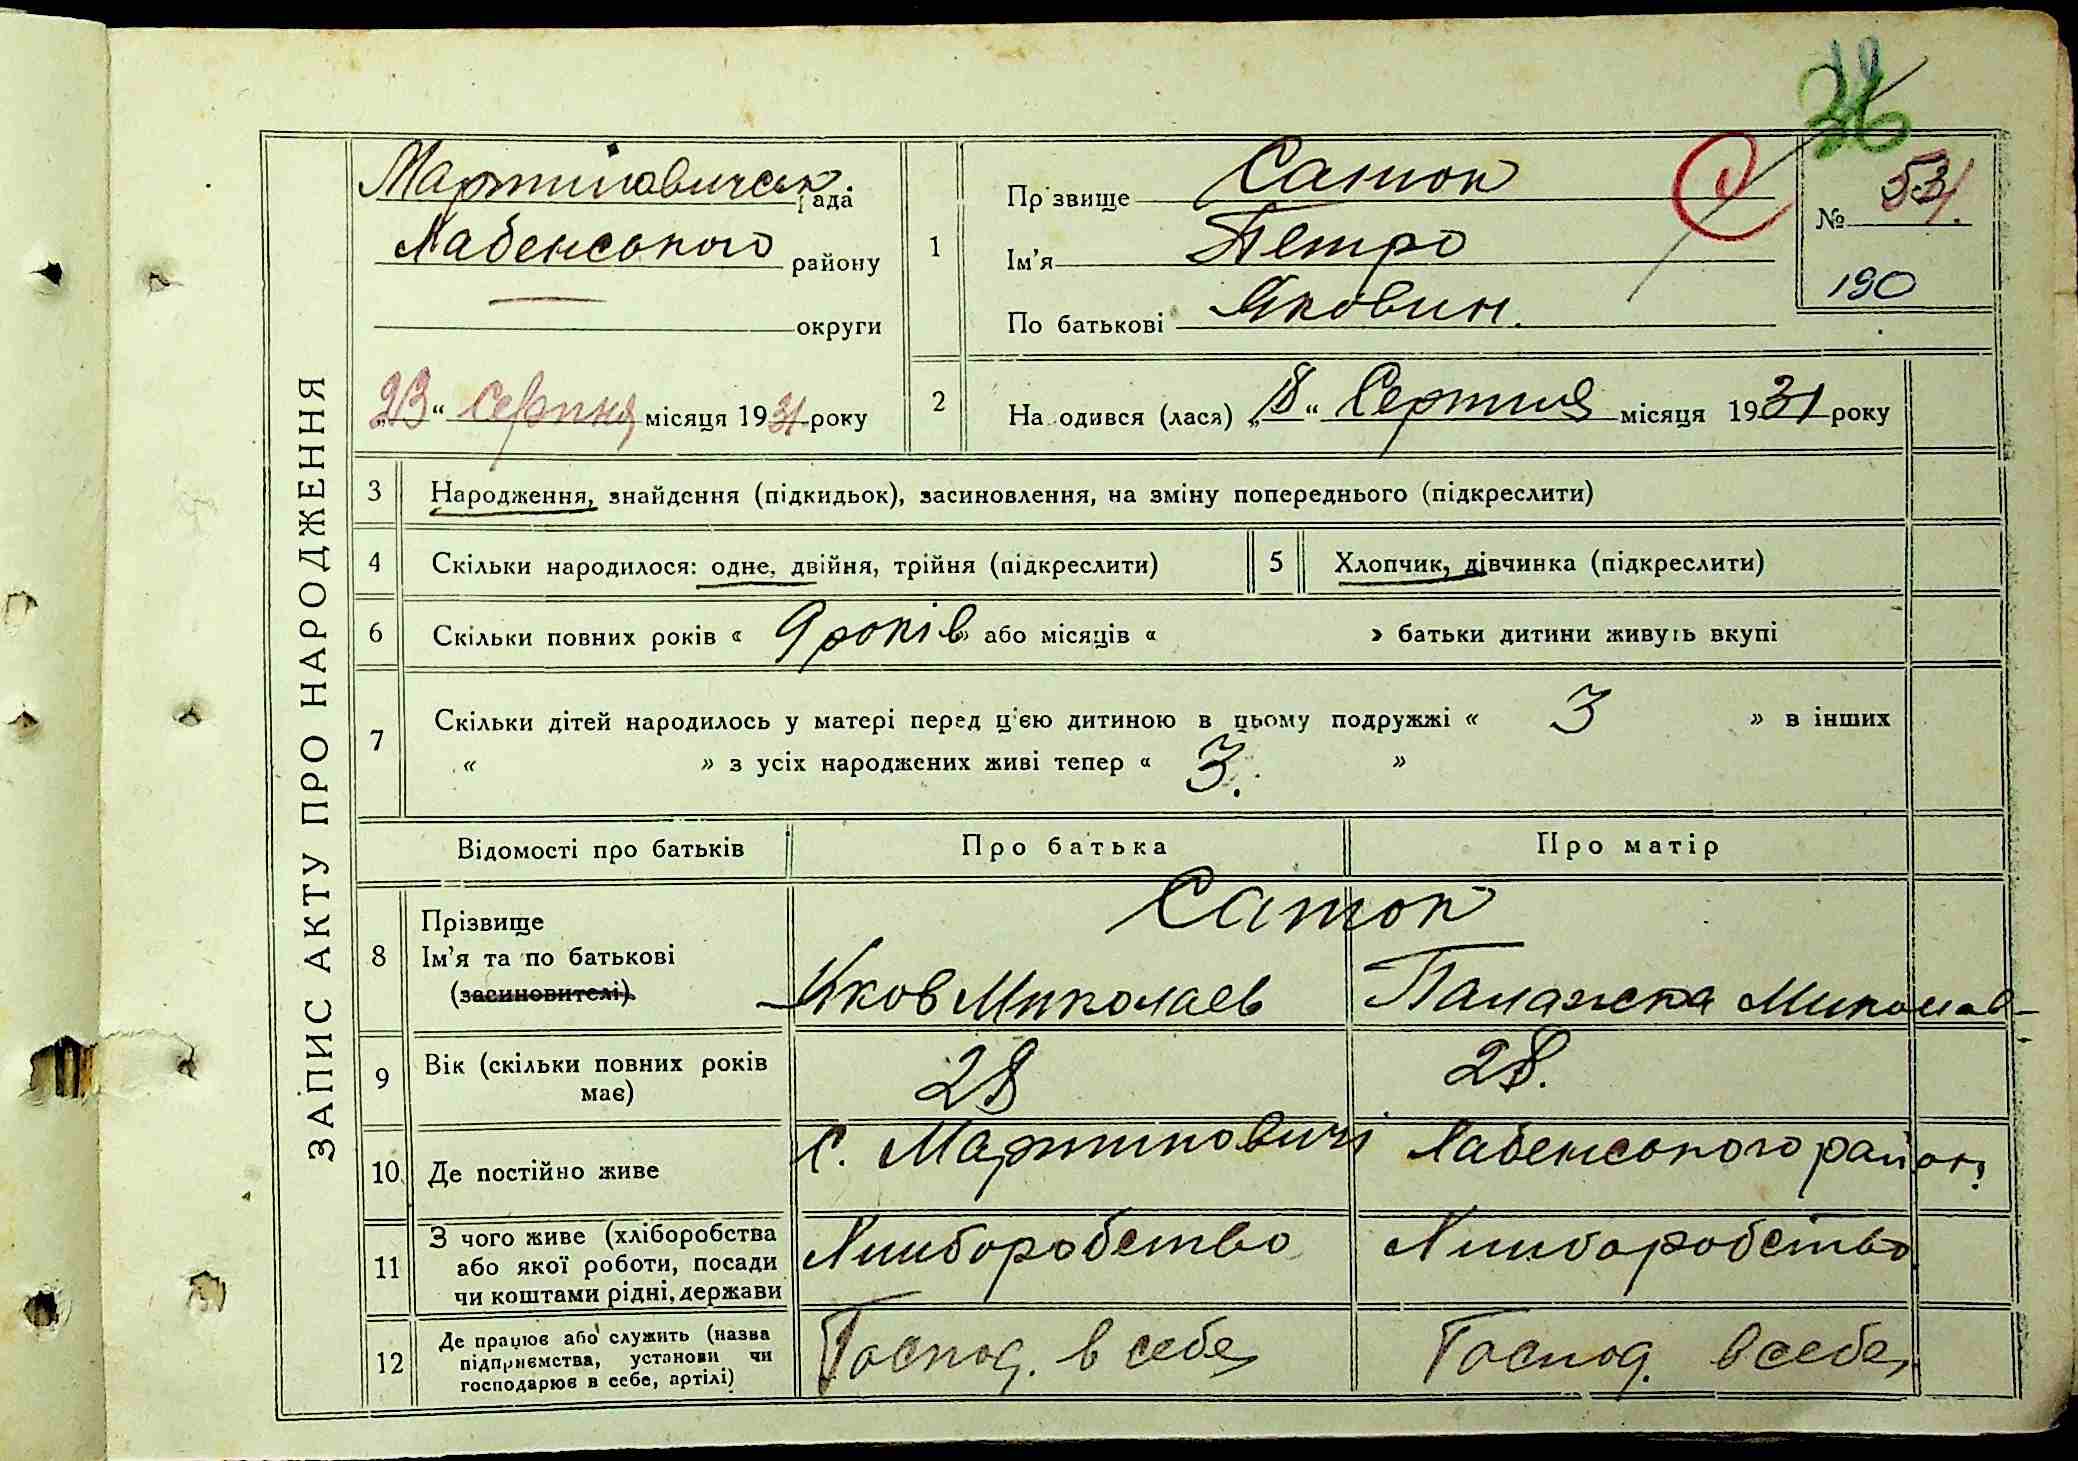 ЗАПИС АКТУ ПРО НАРОДЖЕННЯ
36
Мартиновичск. рада
Хабенського району
округи
„23“ Серпня місяця 1931 року
1
Прізвище Сатюк
Ім'я Петро
По батькові Яковин.
№ 53/.
190
2
Народився (лася) „18“ Серпня місяця 1931 року
3 Народження, знайдення (підкидьок), засиновлення, на зміну попереднього (підкреслити)
4 Скільки народилося: одне, двійня, трійня (підкреслити)
5 Хлопчик, дівчинка (підкреслити)
6 Скільки повних років « 9 років » або місяців « » батьки дитини живуть вкупі
7 Скільки дітей народилось у матері перед ц'єю дитиною в цьому подружжі « 3 » в інших
« » з усіх народжених живі тепер « 3. »
Відомості про батьків Про батька Про матір
8 Прізвище
Ім'я та по батькові
(засиновителі)
Сатюк
Яков Миколаев Палажка Миколаев-
9 Вік (скільки повних років має) 28 28.
10 Де постійно живе с. Мартиновичі Хабенського району
11 З чого живе (хліборобства
або якої роботи, посади
чи коштами рідні, держави
Хлиборобство Хлиборобство
12 Де працює або служить (назва
підприємства, установи чи
господарює в себе, артілі)
Господ. в себе Господ. в себе